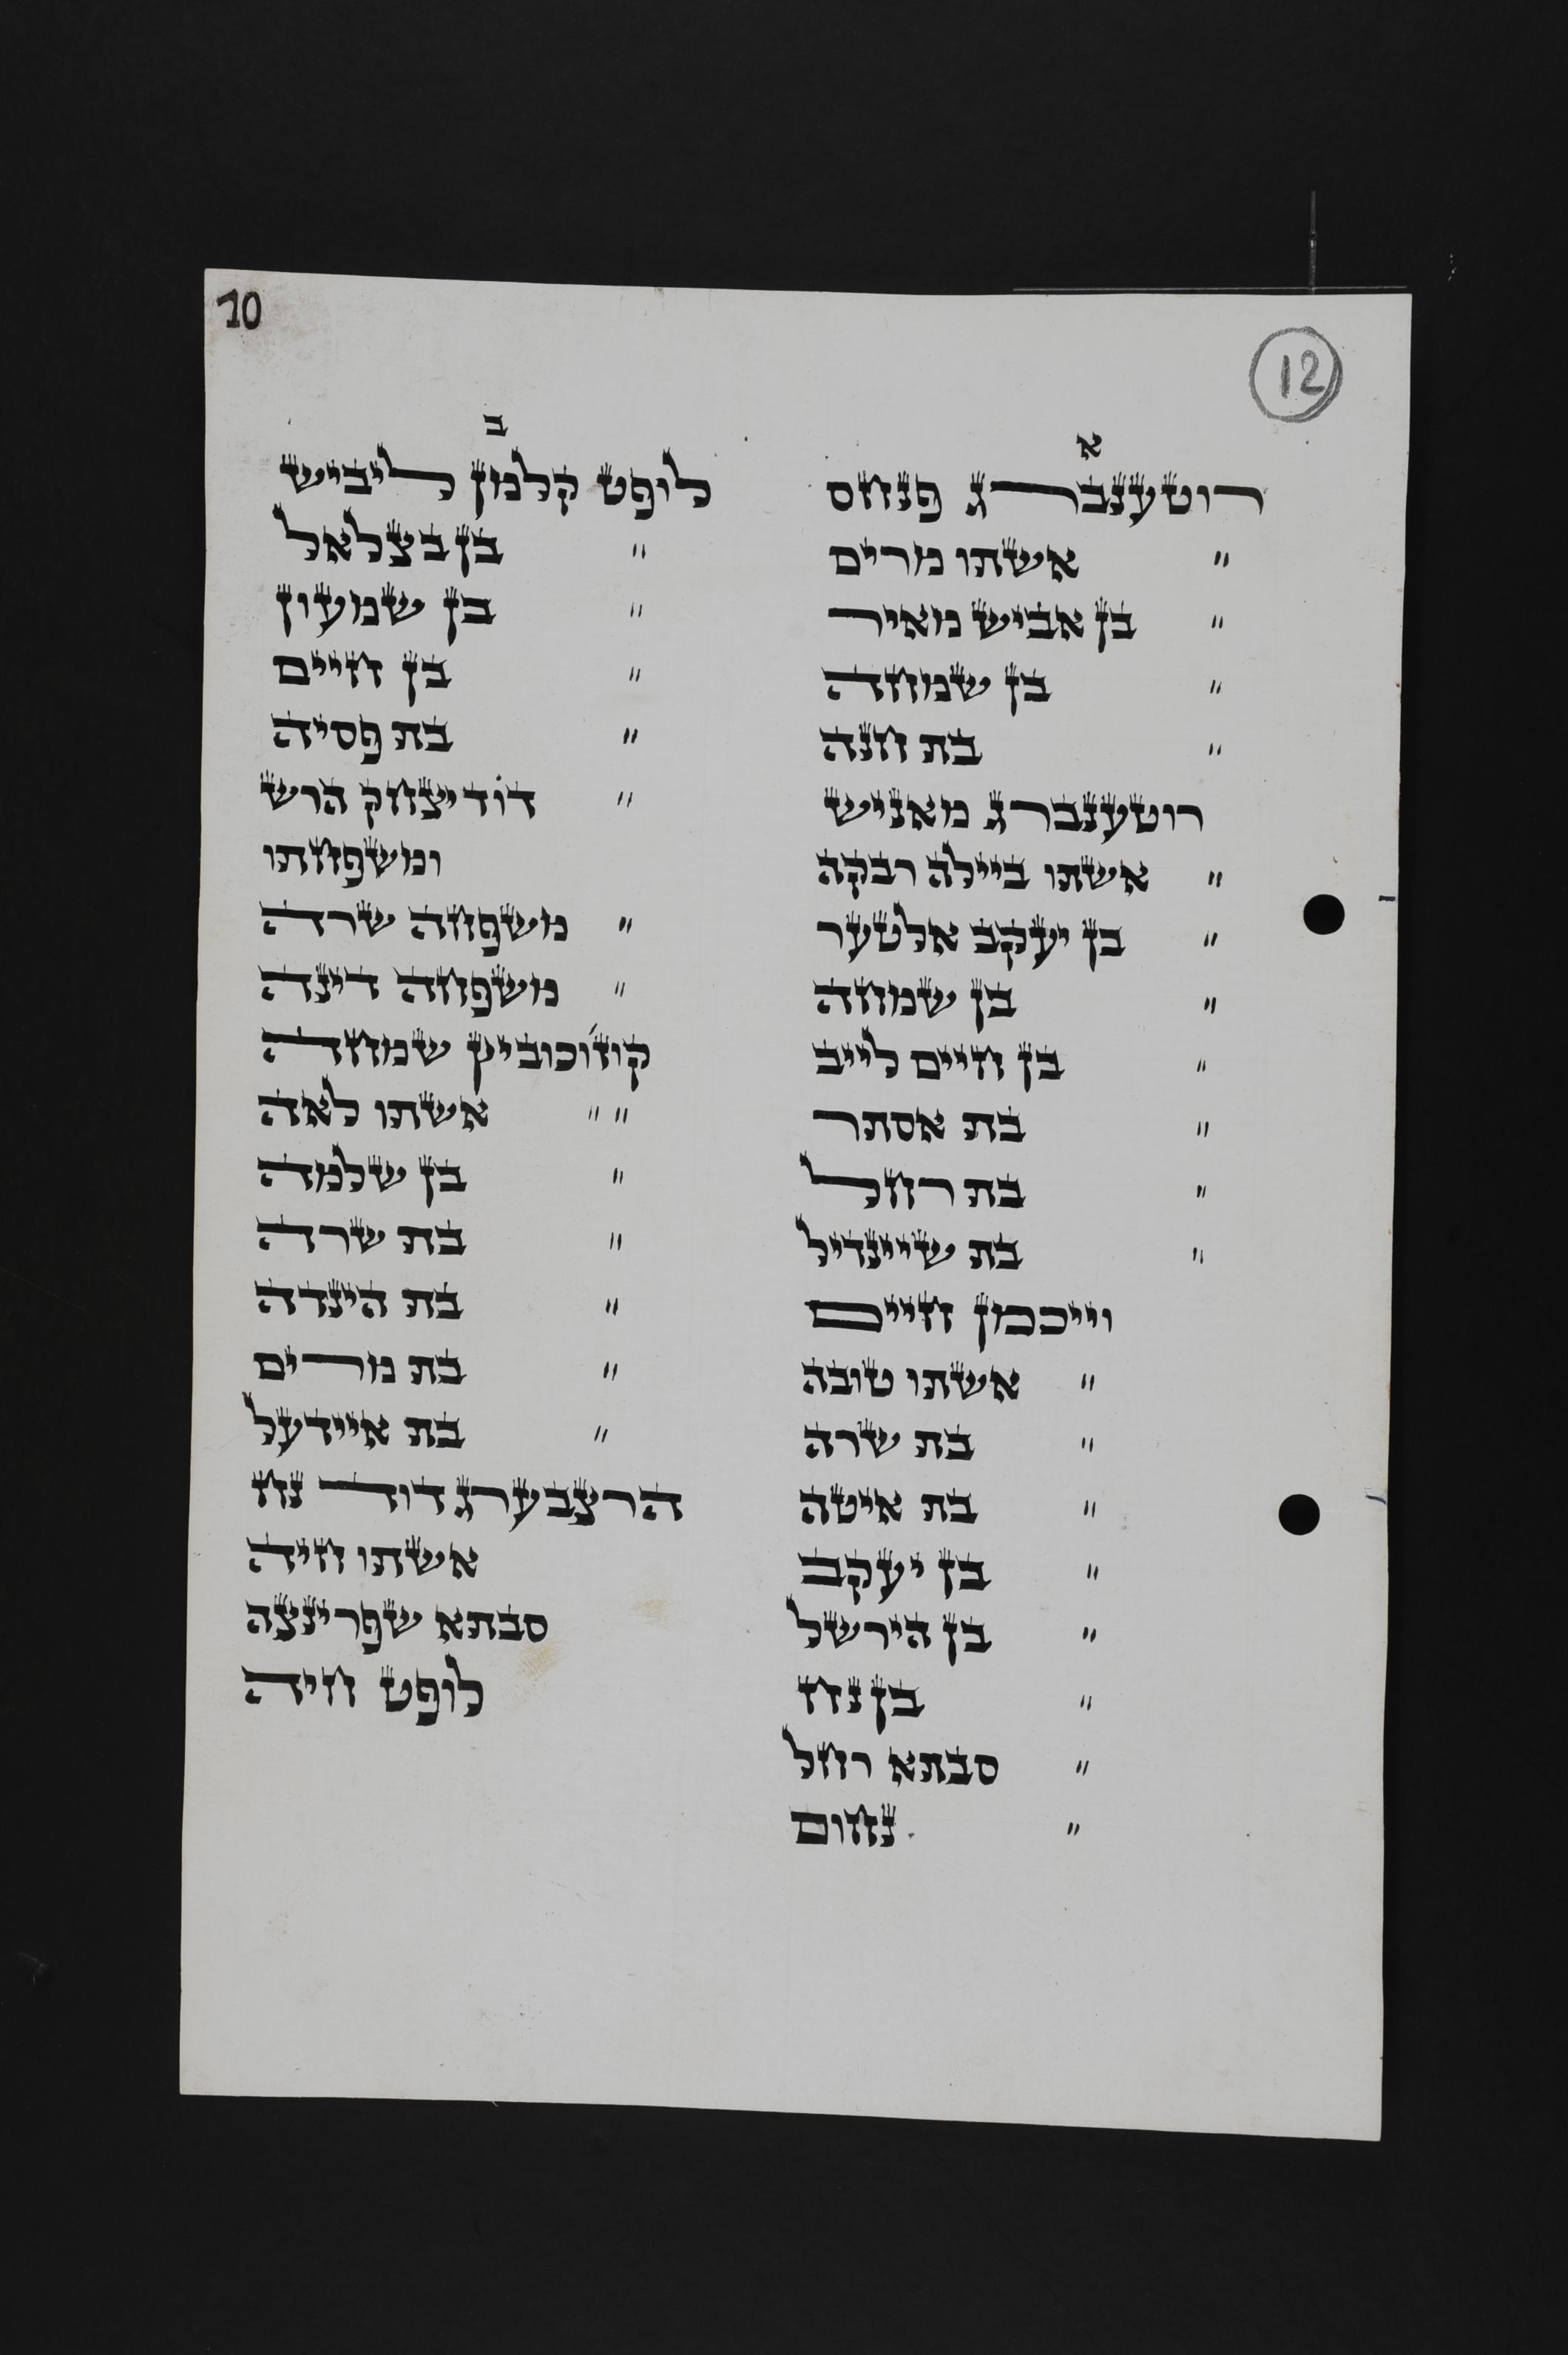 10
12
א
רוטענברג פנחס
" אשתו מרים
" בן אביש מאיר
" בן שמחה
" בת חנה
רוטענברג מאניש
" אשתו ביילה רבקה
" בן יעקב אלטער
" בן שמחה
" בן חיים לייב
" בת אסתר
" בת רחל
" בת שיינדיל
וייכמן חיים
" אשתו טובה
" בת שרה
" בת איטה
" בן יעקב
" בן הירשל
" בן נח
" סבתא רחל
" נחום
ב
לופט קלמן ליביש
" בן בצלאל
" בן שמעון
" בן חיים
" בת פסיה
" דוד יצחק הרש
ומשפחתו
" משפחה שרה
" משפחה דינה
שמחה
" " אשתו לאה
" בן שלמה
" בת שרה
" בת הינדה
" בת מרים
" בת איידעל
הרצבערג דוד נח
אשתו חיה
סבתא שפרינצה
לופט חיה